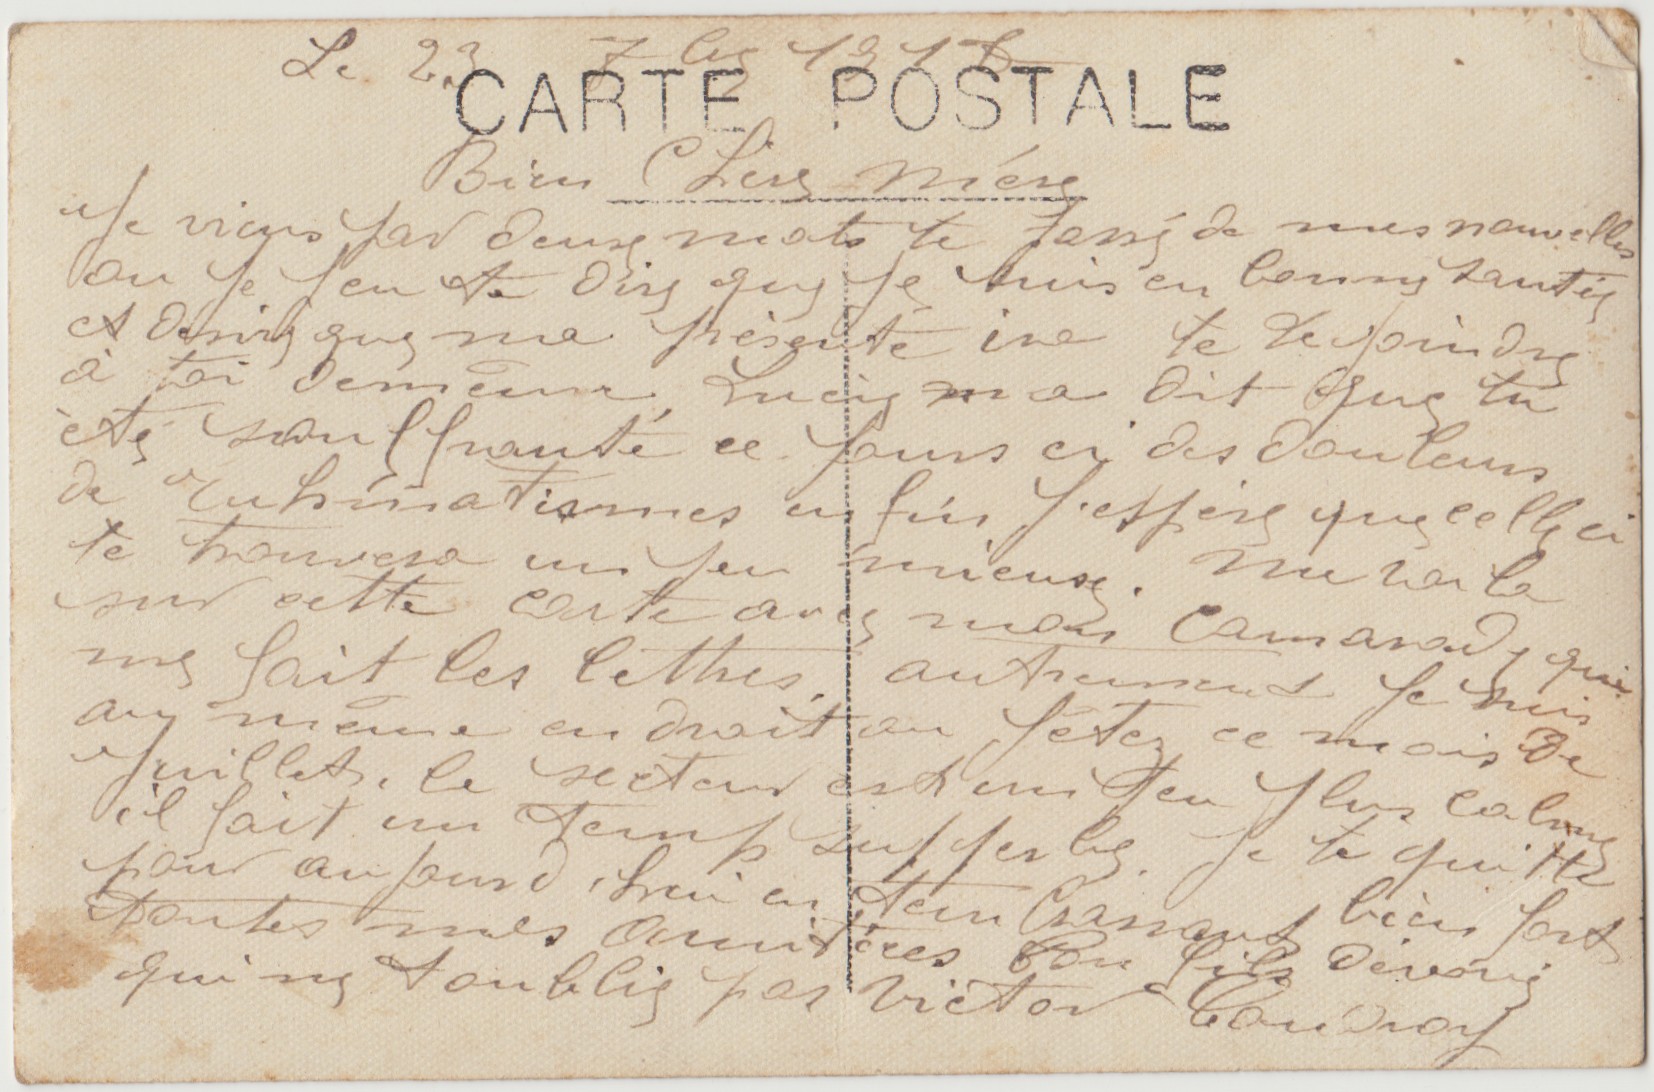 Le 23 7bre 191
CARTE POSTALE
Bien Chère mère
Je viens par deux mots te de mes nouvelles
ou je peu te dire que je suis en bonne santée
et desire que ma présente ira te rejoindre
à toi demême. Lucie ma dit que tu
èté souffranté ce jours ci des douleurs
de ruhmatismes enfin j'espère que celle ci
te trouvera un peu mieuse. me voila
sur cette carte avec mon camarade qui
me fait les lettres, autrement je suis
au même endroit ou jétez ce mois de
Juillet, le secteur est un peu plus calme
il fait un temp supperbe. je te quitte
pour aujourd'hui en tenbrassant bien fort
toutes mes amitiées ton fils dévoué
qui ne toublie pas Victor